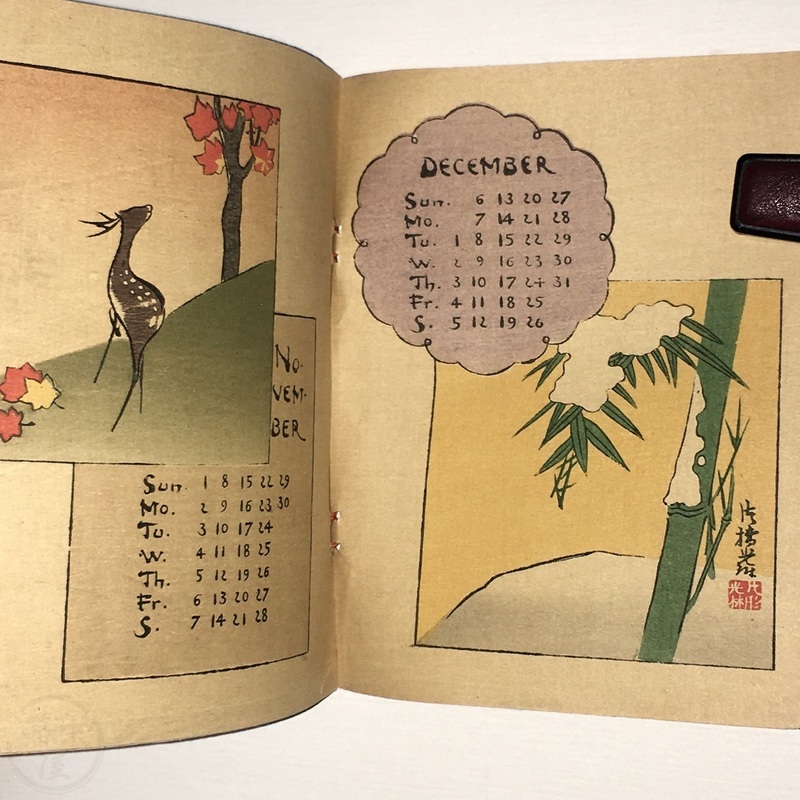 No-
VEM-
BER
Sun. 1 8 15 22 29
Mo. 2 9 16 23 30
Tu. 3 10 17 24
W. 4 11 18 25
Th. 5 12 19 26
Fr. 6 13 20 27
S. 7 14 21 28
DECEMBER
Sun. 6 13 20 27
Mo. 7 14 21 28
Tu. 1 8 15 22 29
W. 2 9 16 23 30
Th. 3 10 17 24 31
Fr. 4 11 18 25
S. 5 12 19 26